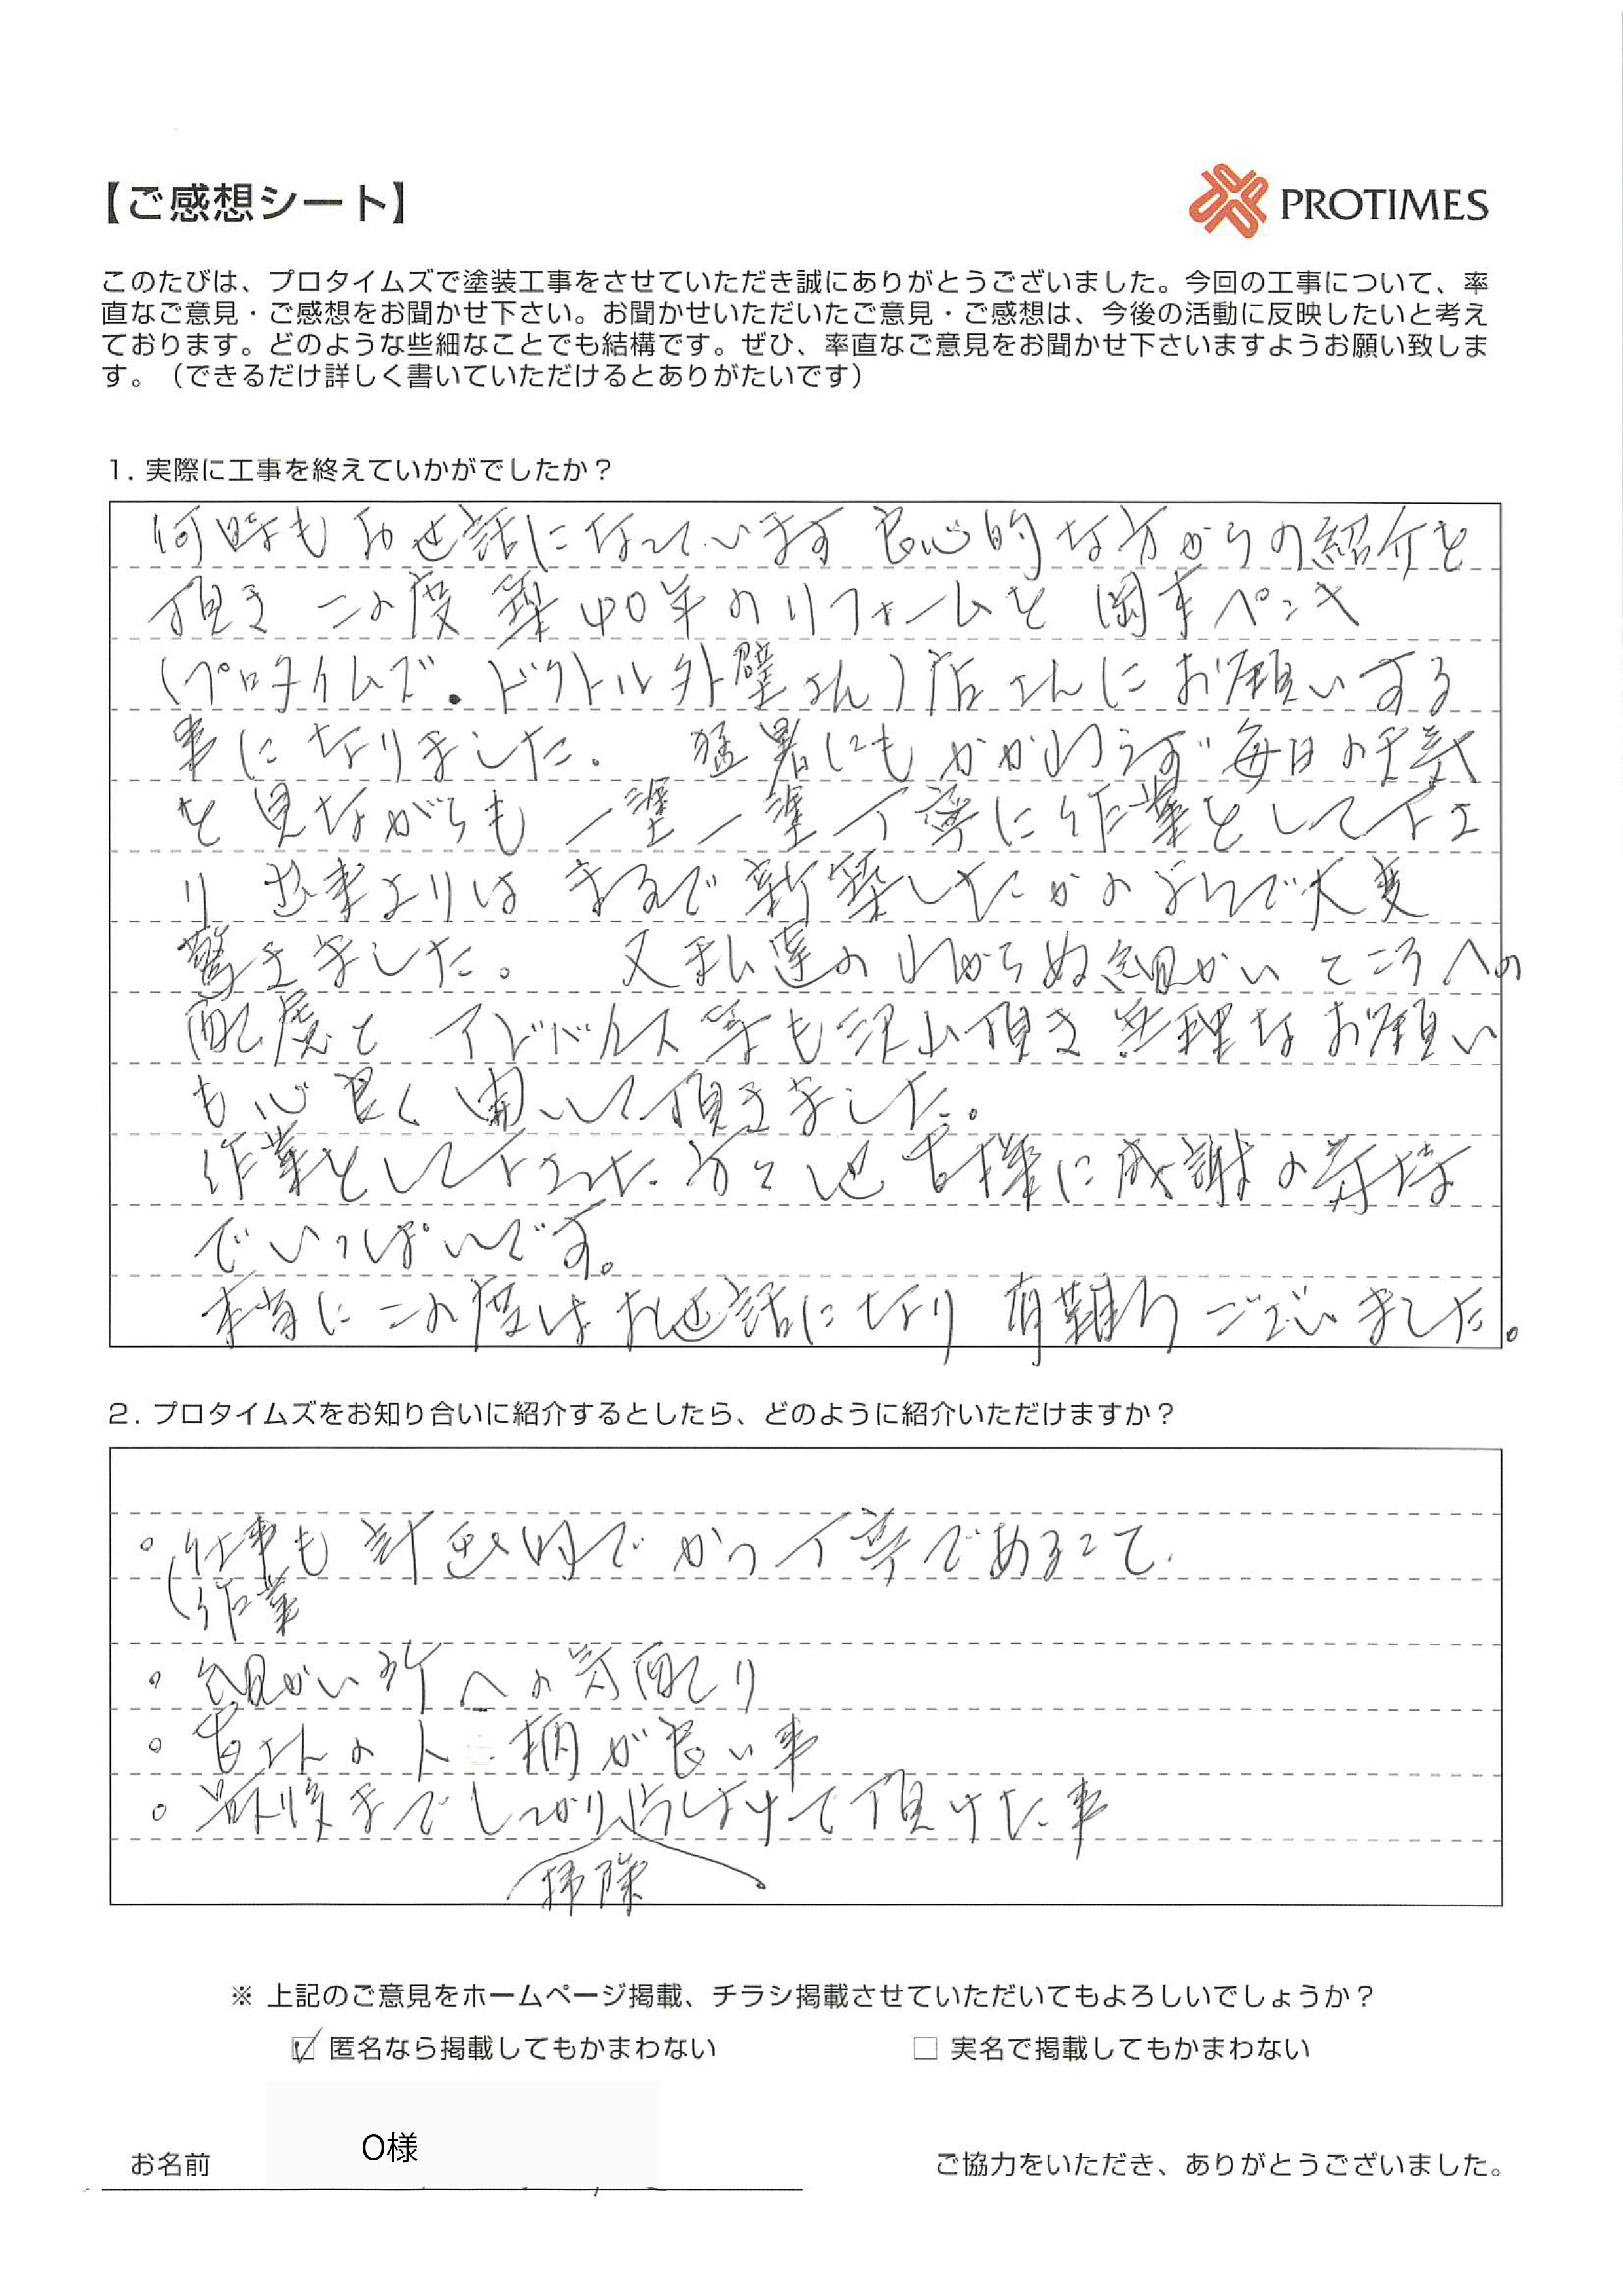 【ご感想シート】
PROTIMES
このたびは、プロタイムズで塗装工事をさせていただき誠にありがとうございました。今回の工事について、率
直なご意見・ご感想をお聞かせ下さい。お聞かせいただいたご意見・ご感想は、今後の活動に反映したいと考え
ております。どのような些細なことでも結構です。ぜひ、率直なご意見をお聞かせ下さいますようお願い致しま
す。（できるだけ詳しく書いていただけるとありがたいです）
1. 実際に工事を終えていかがでしたか？
何時もお世話になっています良心的な方からの紹介を
頂き この度 築40年のリフォームを 岡本ペンキ
(プロタイムズ・ドクトル外壁さん)店さんにお願いする
事になりました。 猛暑にもかかわらず毎日の天気
を見ながらも 一塗一塗丁寧に作業をして下さ
り 出来上りは まるで新築したかのようで大変
驚きました。 又私達のわからぬ細かいところへの
配慮と アドバイス等も沢山頂き 無理なお願い
も心良く聞いて頂きました。
作業をして下さった方々 皆様に感謝の気持
でいっぱいです。
本当にこの度はお世話になり 有難うございました。
2. プロタイムズをお知り合いに紹介するとしたら、どのように紹介いただけますか？
。仕事も計画的でかつ丁寧であること.
(作業
。細かい所への気配り
。皆さんの人柄が良い事
。最後までしっかり片付けて頂けた事
掃除
※ 上記のご意見をホームページ掲載、チラシ掲載させていただいてもよろしいでしょうか？
☑ 匿名なら掲載してもかまわない □ 実名で掲載してもかまわない
お名前 O様 ご協力をいただき、ありがとうございました。